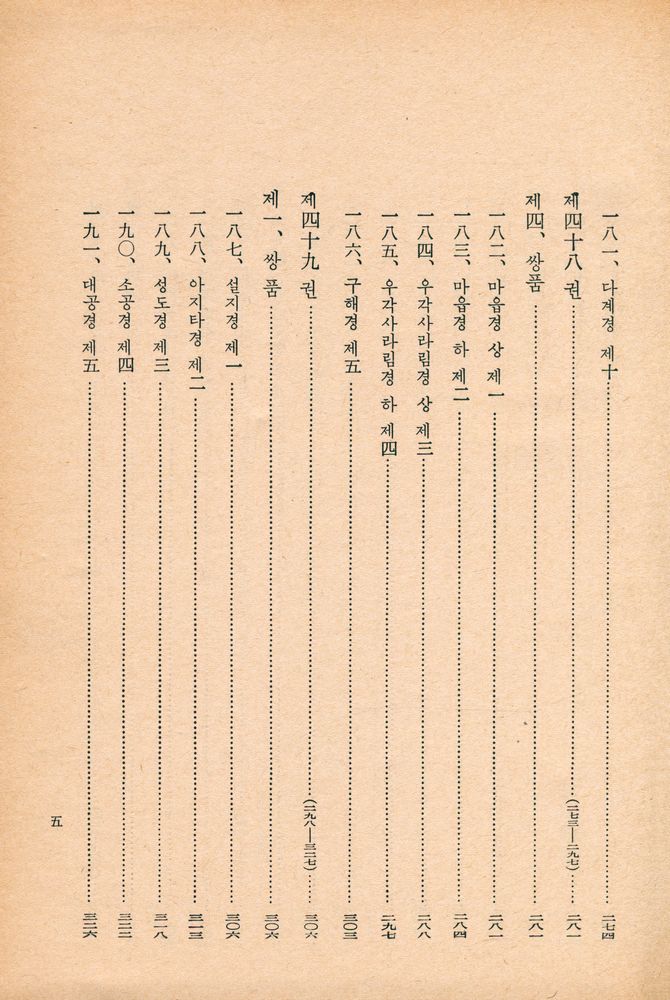 一八一、다계경 제十 二七四
제四十八권 (二七三—二九七) 二八一
제四、쌍품 二八一
一八二、마읍경 상 제一 二八一
一八三、마읍경 하 제二 二八四
一八四、우각사라림경 상 제三 二八八
一八五、우각사라림경 하 제四 二九七
一八六、구해경 제五 三〇三
제四十九권 (二九八—三二七) 三〇六
제一、쌍품 三〇六
一八七、설지경 제一 三〇六
一八八、아지타경 제二 三一三
一八九、성도경 제三 三一八
一九〇、소공경 제四 三二二
一九一、대공경 제五 三二六
五